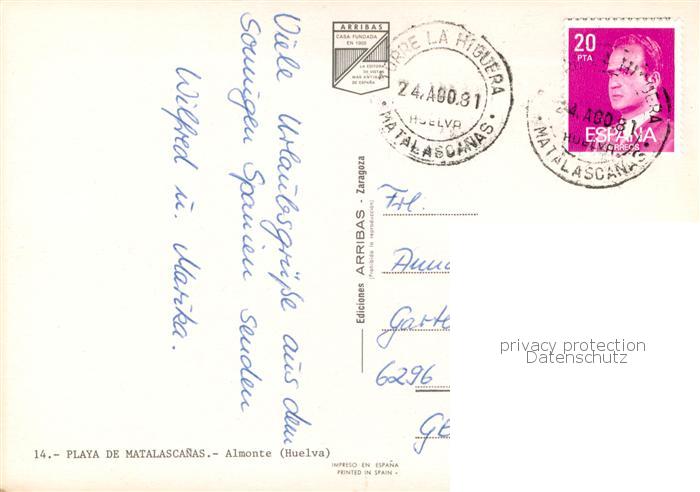 Viele Urlaubsgrüße aus dem
Sonnigen Spanien senden
Wilfred u. Marika.
ARRIBAS
CASA FUNDADA
EN 1905
LA EDITORA
DE VISTAS
MAS ANTIGUA
DE ESPAÑA
TORRE LA HIGUERA
24.AGO.81
HUELVA
·MATALASCAÑAS·
20
PTA
HIGUERA
24.AGO.81
HUELVA
ESPAÑA
CORREOS
·MATALASCAÑAS·
Ediciones ARRIBAS - Zaragoza
(Prohibida la reproducción)
Frl.
Garte
6296
privacy protection
Datenschutz
14.- PLAYA DE MATALASCAÑAS.- Almonte (Huelva)
IMPRESO EN ESPAÑA
PRINTED IN SPAIN